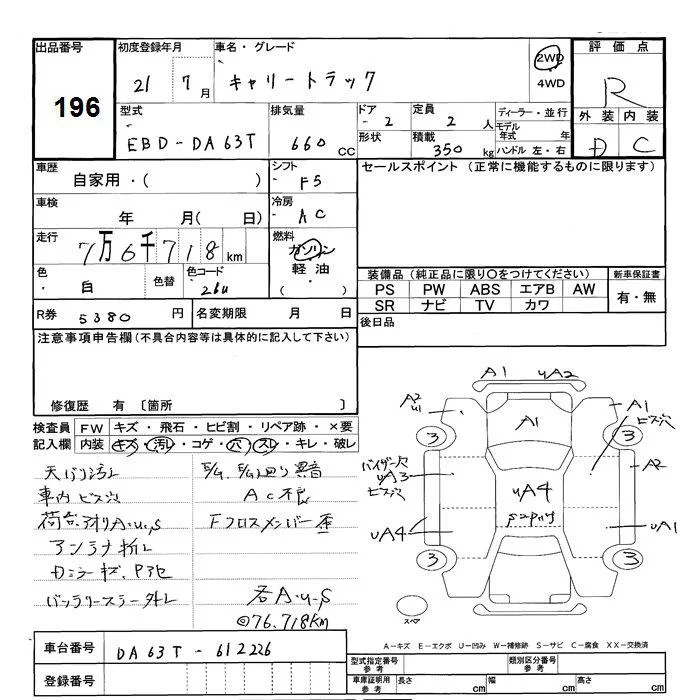 出品番号
196
初度登録年月
21 7月
車名・グレード
キャリートラック
2WD
4WD
評価点
R
外装 内装
D C
型式
EBD-DA63T
排気量
660 cc
ドア
- 2
形状
定員
2 人
積載
350 kg
ディーラー・並行
モデル年式 年
ハンドル 左・右
車歴
自家用・( )
シフト
F5
セールスポイント (正常に機能するものに限ります)
車検
年 月( 日)
冷房
AC
走行
7万6千718km
燃料
ガソリン
軽油
( )
色
白
色替
色コード
26U
装備品 (純正品に限り○をつけてください)
PS PW ABS エアB AW
SR ナビ TV カワ
新車保証書
有・無
R券 5380 円
名変期限 月 日
後日品
注意事項申告欄 (不具合内容等は具体的に記入して下さい)
修復歴 有 〔箇所 〕
検査員記入欄
FW キズ・飛石・ヒビ割・リペア跡・×要
内装 キズ・汚レ・コゲ・穴・スレ・キレ・破レ
天バリ汚レ
車内ビス穴
荷台、アオリA・u・S
アンテナ折レ
Dミラーキズ、P
バッテリーステー外レ
E/g、E/g廻り異音
AC不良
Fクロスメンバー歪
各A・u・S
◎76,718km
A1 uA2
A2
u1
A1
A1
ビス穴
3 3
バイザー穴
uA3
ビス穴
A2
uA4
uA4
uA1
3 3
スペア
A-キズ E-エクボ U-凹み W-補修跡 S-サビ C-腐食 XX-交換済
車台番号
DA63T-612226
登録番号
型式指定番号
参考
類別区分番号
参考
車庫証明用
参考
長さ cm
幅 cm
高さ cm